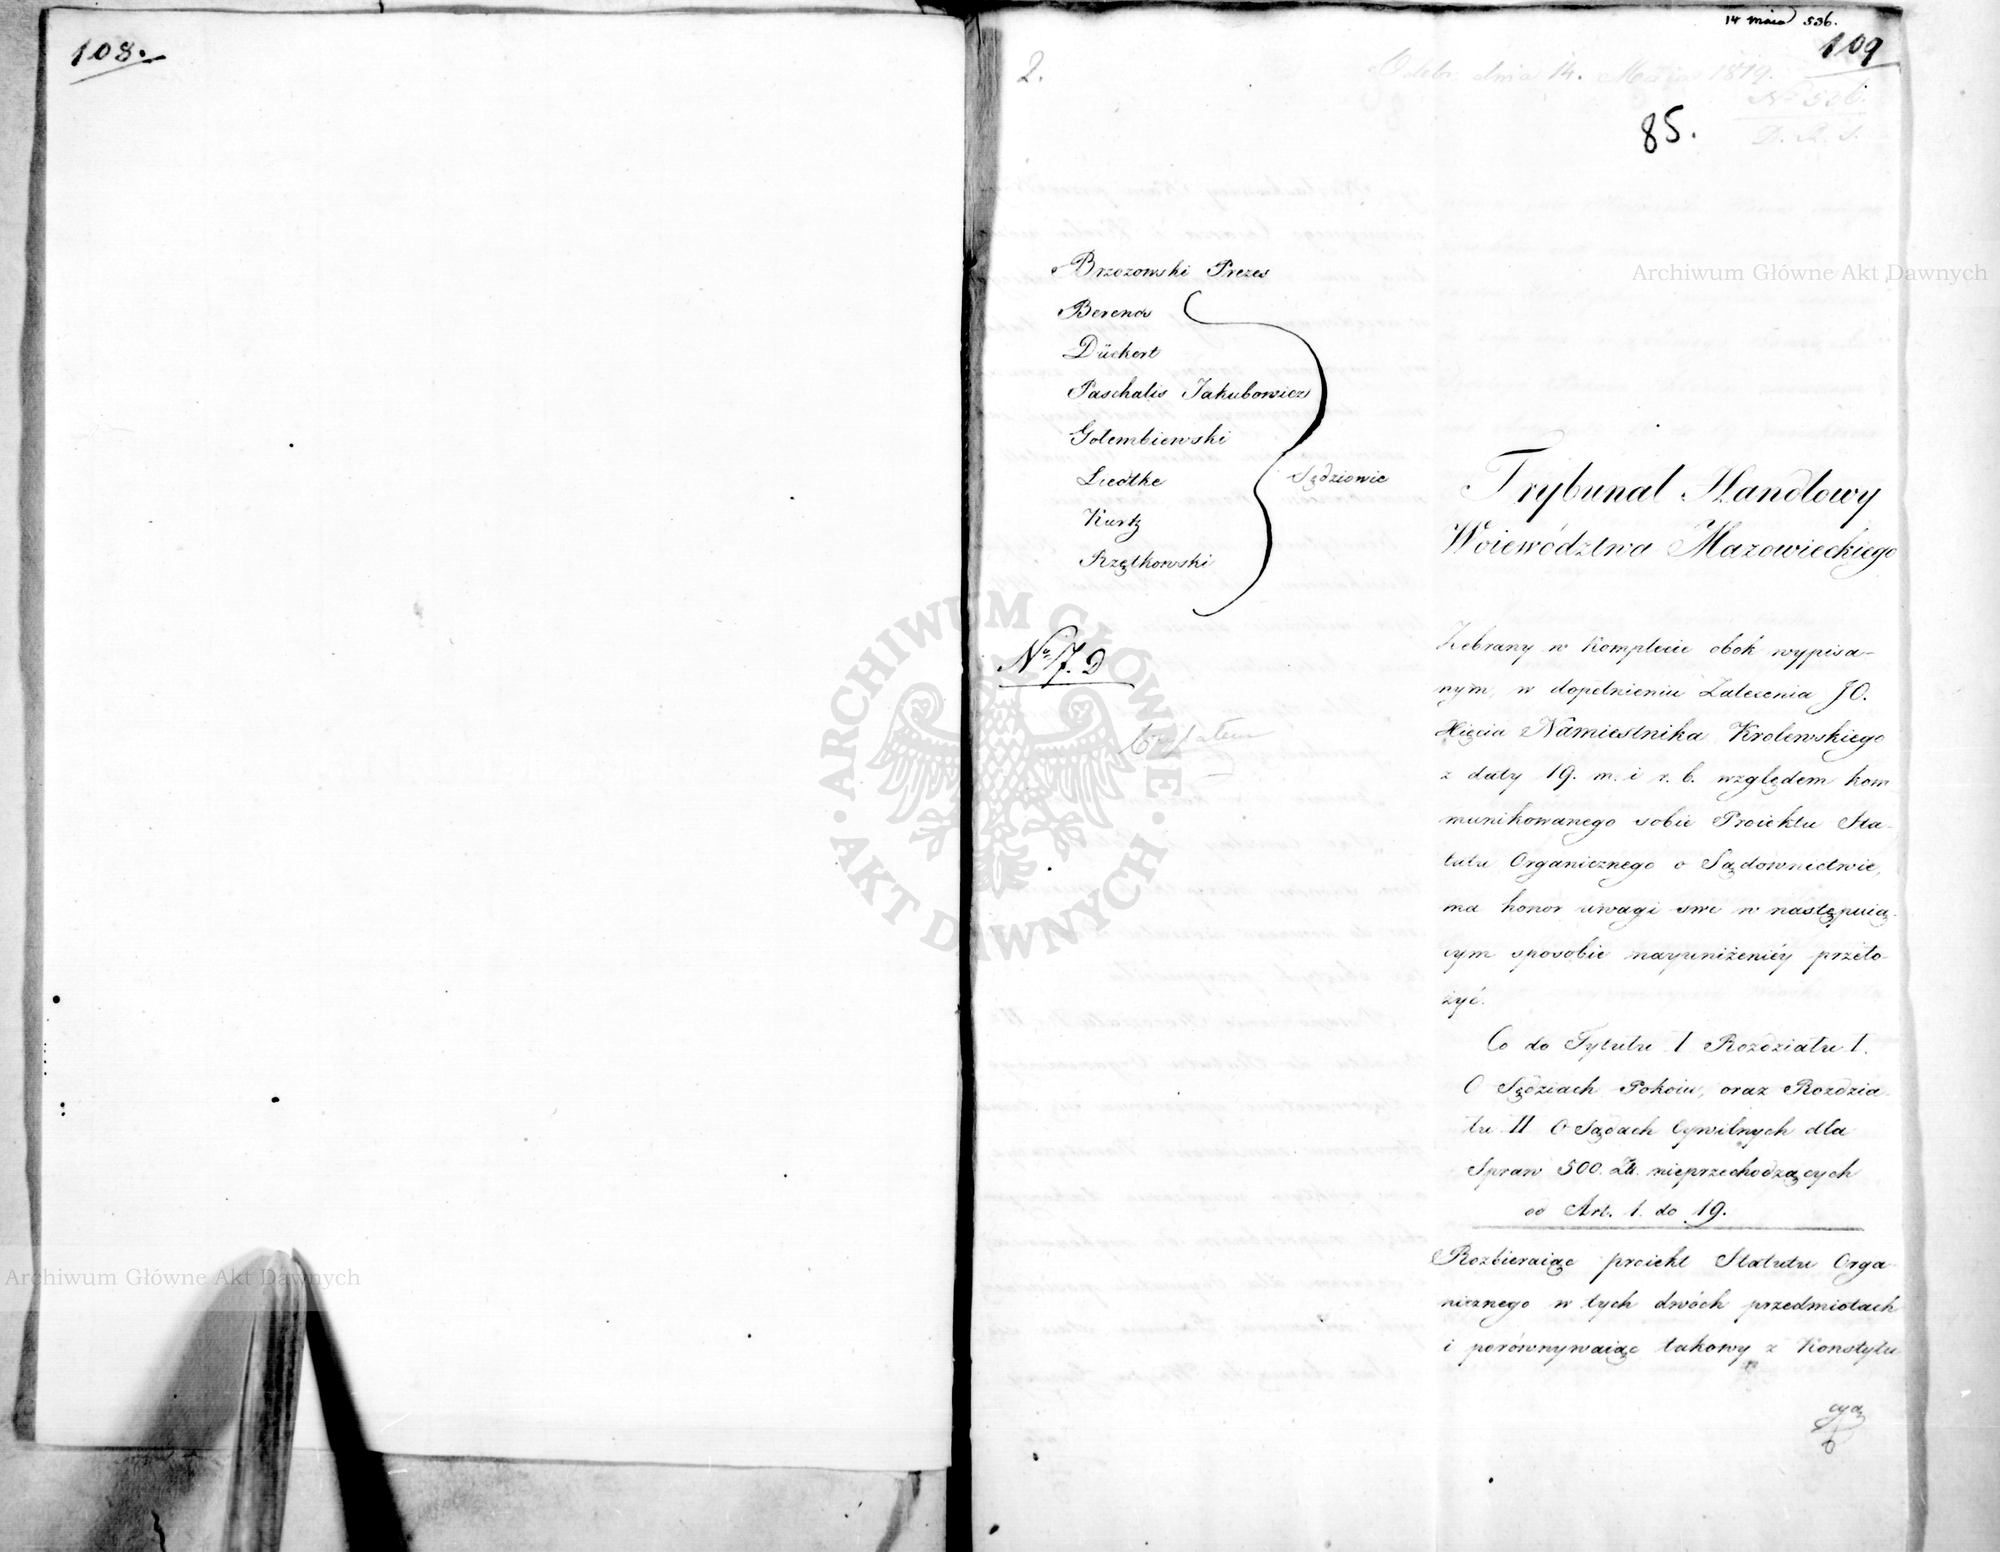 108.
14 maia 536.
109
2.
Odebr. dnia 14. Maja 1819.
No 536.
85.
Brzozowski Prezes
Berend
Dückert
Paschalis Jakubowicz
Gołembiewski
Liedtke
Kurtz
Rzętkowski
Sędziowie
No 7. D
Trybunał Handlowy
Woiewództwa Mazowieckiego
Zebrany w Komplecie obok wypisa-
nym, w dopełnieniu Zalecenia JO.
Xięcia Namiestnika Krolewskiego
z daty 19. m. i r. b. względem kom
munikowanego sobie Proiektu Sta-
tutu Organicznego o Sądownictwie,
ma honor uwagi swe w następuią-
cym sposobie nayuniżeniéy przeło-
żyć.
Co do Tytułu I Rozdziału I.
O Sędziach Pokoiu, oraz Rozdzia-
łu II O Sądach Cywilnych dla
Spraw 500. Zł. nieprzechodzących
od Art. 1. do 19.
Rozbieraiąc proiekt Statutu Orga-
nicznego w tych dwóch przedmiotach
i porównywaiąc takowy z Konstytu
cyą
Archiwum Główne Akt Dawnych
Archiwum Główne Akt Dawnych
ARCHIWUM GŁÓWNE AKT DAWNYCH